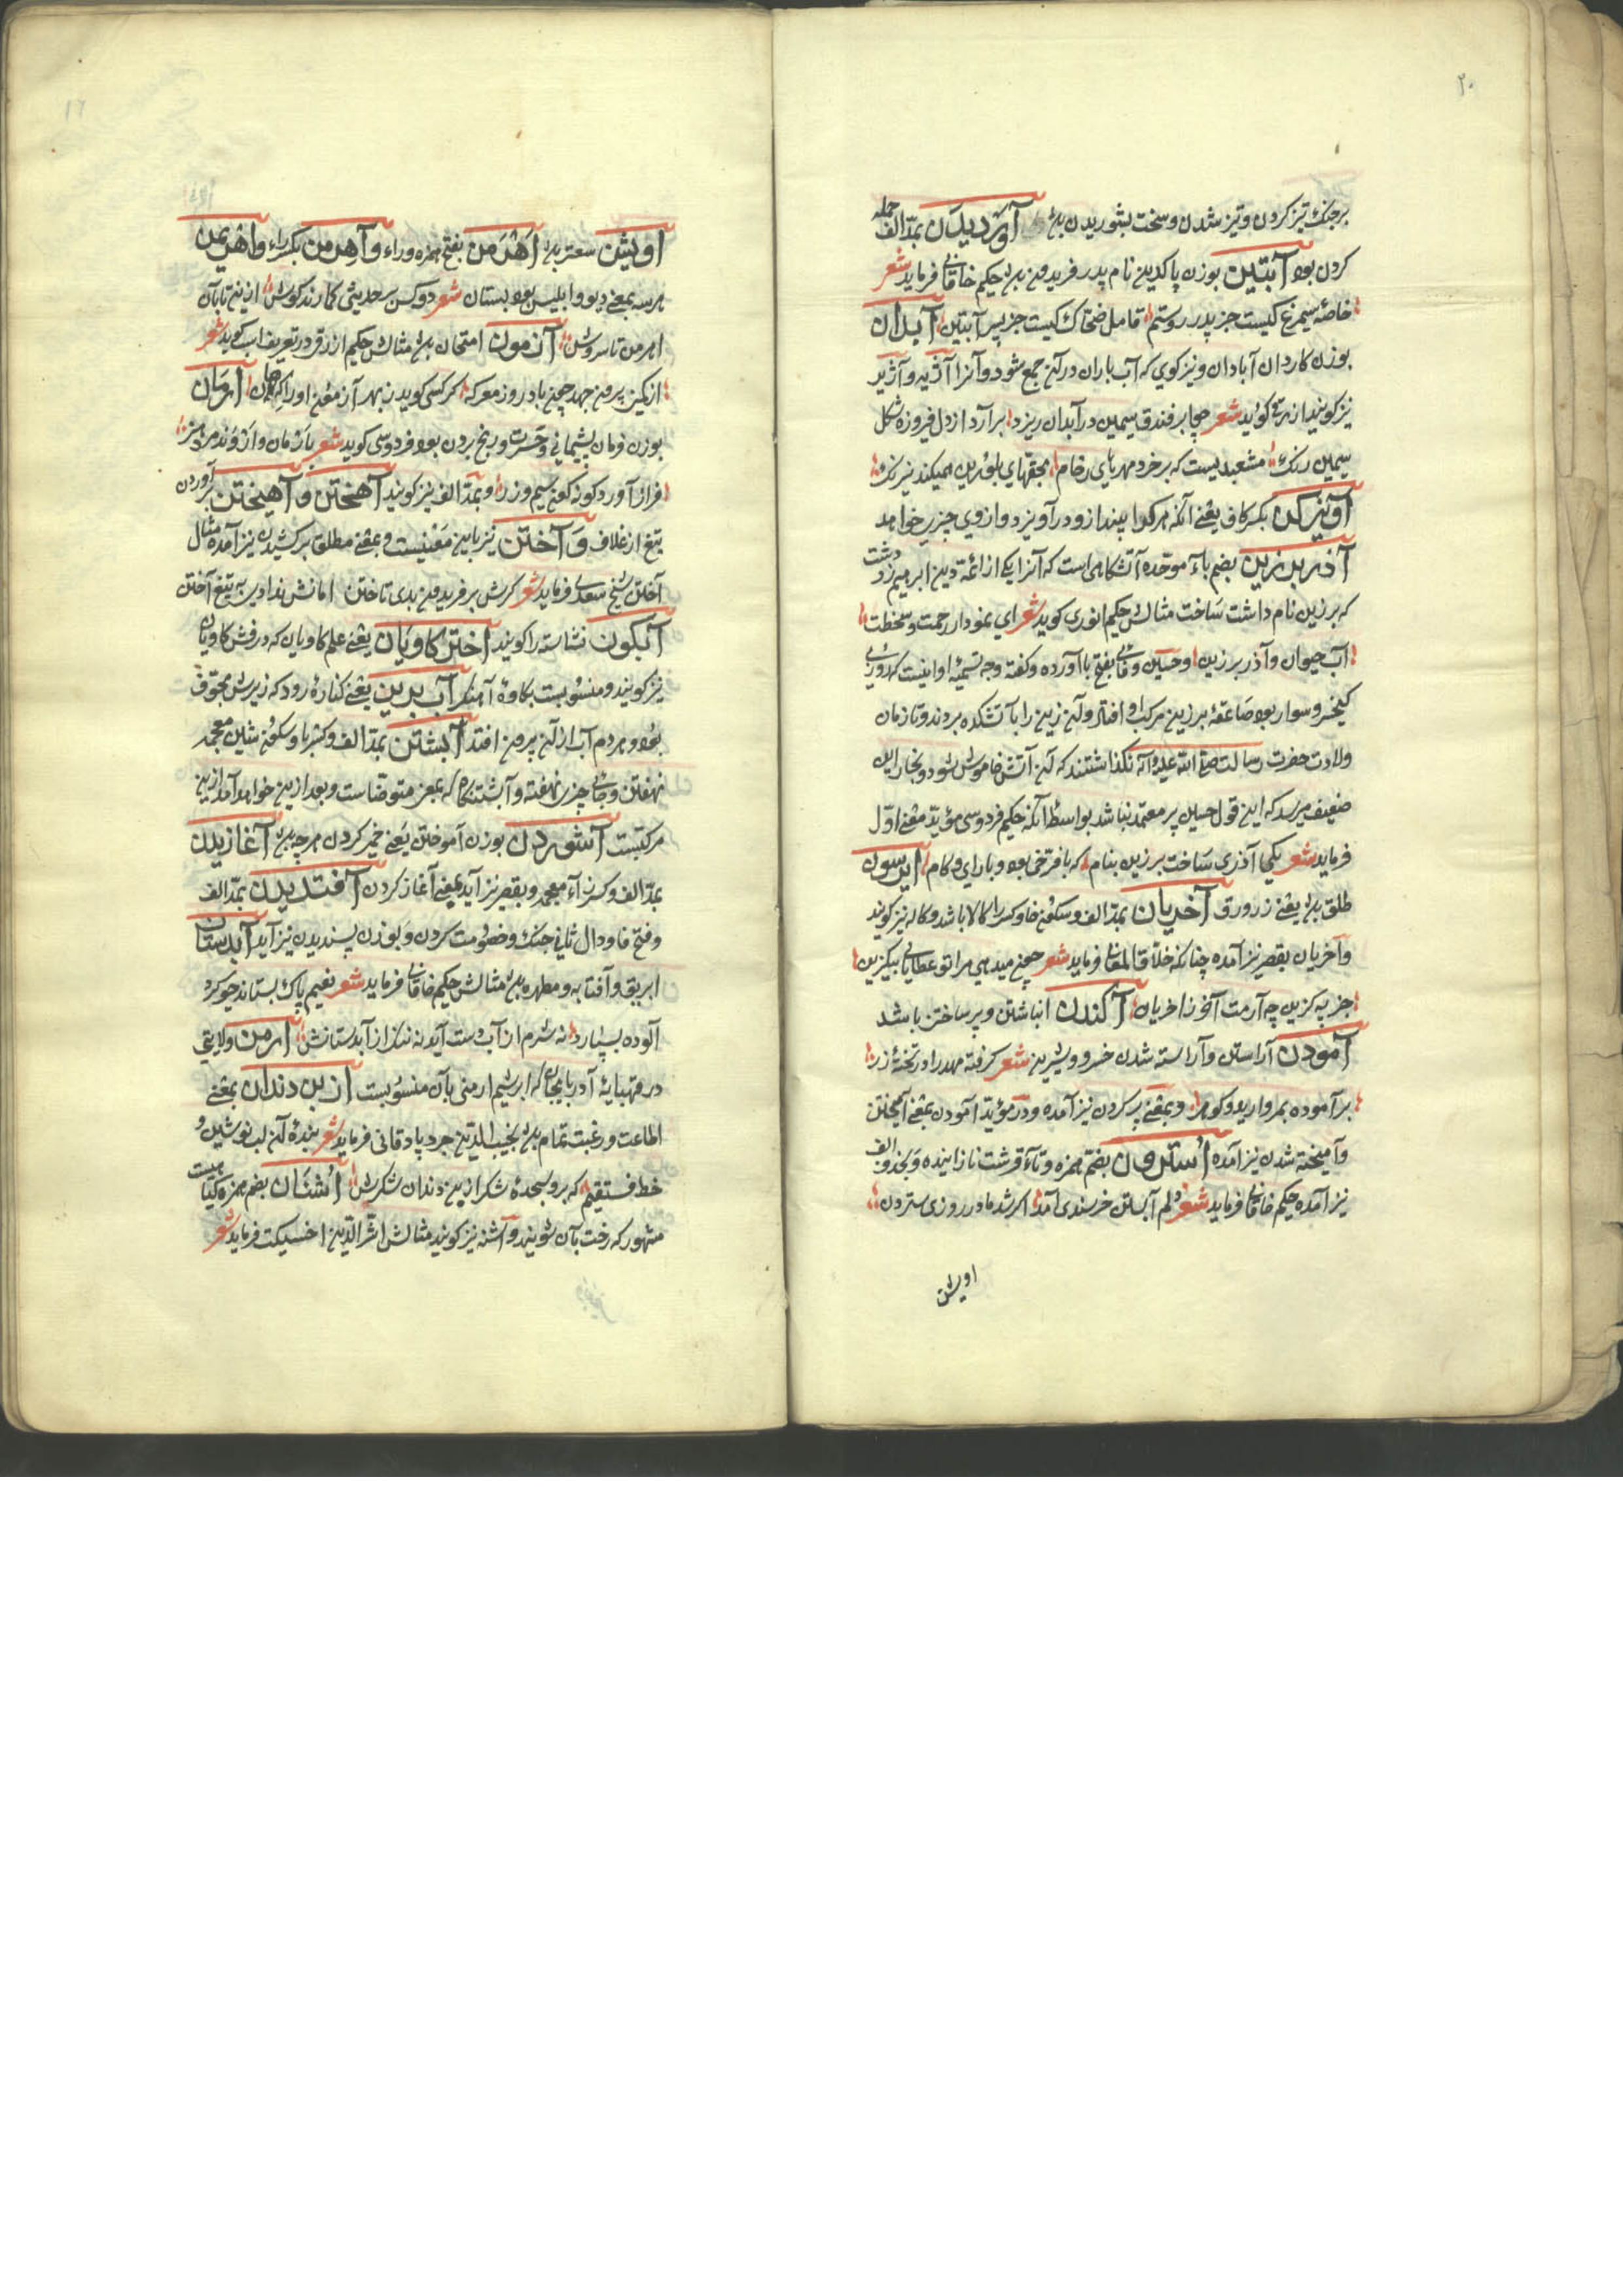 ۲۰
بر جنک تیز کردن و تیز شدن و سخت بشوریدن بود آوردیدن بمدّ الف حمله
کردن بود آبتین بوزن پاکدین نام پدر فریدون بود حکیم خاقانی فرماید شعر
خاصهٔ سیمرغ کیست جز پدر روستم قاتل ضحّاک کیست جز پسر آبتین آبدان
بوزن کاردان آبادان و نیز کوی که آب باران در آن جمع شود و آنرا آژیه و آژید
نیز کویند ازرقی کوید شعر چو ابر فندق سیمین در آبدان ریزد بر آرد از دل فیروزه شکل
سیمین رنک مشعبدیست که بر خرد مهرهای رخام بحقّهای بلورین همیکند نیرنک
آویزکن بکسر کاف یعنی آنکه هرکرا بیند ازو در آویزد و از وی چیزی خواهد
آذربرزین بضم باء موحّده آتشکاهی است که آنرا یکی از ائمّهٔ دین ابرهیم زردشت
که برزین نام داشت ساخت مثالش حکیم انوری کوید شعر ای نمودار رحمت و سخطت
آب حیوان و آذر برزین و حسین وفائی بفتح با آورده و کفته وجه تسمیهٔ او اینست که روزی
کیخسرو سوار بود صاعقه بر زین مرکب او افتاد و آن زین را بآتشکده بردند و تا زمان
ولادت حضرت رسالت صلی الله علیه و آله نکذاشتند که آن آتش خاموش شود و بخاطر این
ضعیف میرسد که این قول حسین پر معتمد نباشد بواسطهٔ آنکه حکیم فردوسی مؤید معنی اوّل
فرماید شعر یکی آذری ساخت برزین بنام که با فرّخی بود و با رای و کام ابرسون
طلق بود یعنی زرورق آخریان بمدّ الف و سکون خا و کسر را کالا باشد و کاله نیز کویند
و آخریان بقصر نیز آمده چنانکه خلاق المعانی فرماید شعر چون میدهی مرا تو عطایی بیکزین
جز به کزین چه آرمت آخر ز اخریان آکندن انباشتن و پر ساختن باشد
آمودن آراستن و آراسته شدن خسرو و شیرین شعر کرفته مهد را در تختهٔ زر
بر آموده بمروارید و کوهر و بمعنی پر کردن نیز آمده و در مؤید آمودن بمعنی آمیختن
و آمیخته شدن نیز آمده اُسترون بضمّ همزه و تاء قرشت نازاینده و بحذف الف
نیز آمده حکیم خاقانی فرماید شعر دلم آبستن خرسندی آمد اکر شد مادر روزی سترون
اویشن
۱۶
اویشن سعتر بود آهرمن بفتح همزه و راء و آهِرمن بکسراء و اهریمن
هر سه بمعنی دیو و ابلیس بود بستان شعر دو کس بر حدیثی کمارند کوش ازین تا بآن
اهرمن تا سروش آزمون امتحان بود مثالش حکیم ازرقی در تعریف اسب کوید شعر
از کمین بیرون جهد چون باد روز معرکه هر کسی کوید ز بهر آزمون او را که هان ارمان
بوزن فرمان پشیمانی و حسرت و رنج بردن بود فردوسی کوید شعر
فراز آورد کونه کون سیم و زر و بمدّ الف نیز کویند آهختن و آهیختن بر آوردن
تیغ از غلاف و آختن نیز باین معنیست و بمعنی مطلق بر کشیدن نیز آمده مثال
آختن شیخ سعدی فرماید شعر کرش بر فریدون بدی تاختن امانش ندادی بتیغ آختن
آبکون نشاسته را کویند اختر کاویان یعنی علم کاویان که درفش کاویان
نیز کویند و منسوبست بکاوهٔ آهنکر آب برین یعنی کنارهٔ رود که زیرش مجوّف
بود و مردم آب از آن بیرون افتد آبشتن بمدّ الف و کسر با و سکون شین معجمه
نهفتن و جای چیزی نهفته و آبشتنکاه که بمعنی متوضّاست و بعد ازین خواهد آمد ازین
مرکّبست آشوردن بوزن آموختن یعنی خمیر کردن هر چه بود آغازیدن
بمدّ الف و کسر زاء معجمه و بقصر نیز آید بمعنی آغاز کردن آفندیدن بمدّ الف
و فتح فا و دال ثانی جنک و خصومت کردن و بوزن پسندیدن نیز آید آبدستان
ابریق و آفتابه و مطهره بود مثالش حکیم خاقانی فرماید شعر نعیم پاک بستاند چو کرد
آلوده بسپارد نه شرم از آب دست آید نه ننک از آبدستانش ارمن ولایتی
در قهپایهٔ آذربایجان که ابریشم ارمنی بآن منسوبست از بن دندان بمعنی
اطاعت و رغبت تمام بود نجیب الدین جرباذقانی فرماید شعر بندهٔ آن لب نوشین و
خط فستقیم که برو سجده شکر از بن دندان شکرش اُشنان بضم همزه کیاهیست
مشهور که رخت بآن شویند و اشنه نیز کویند مثالش اثیر الدین اخسیکت فرماید شعر